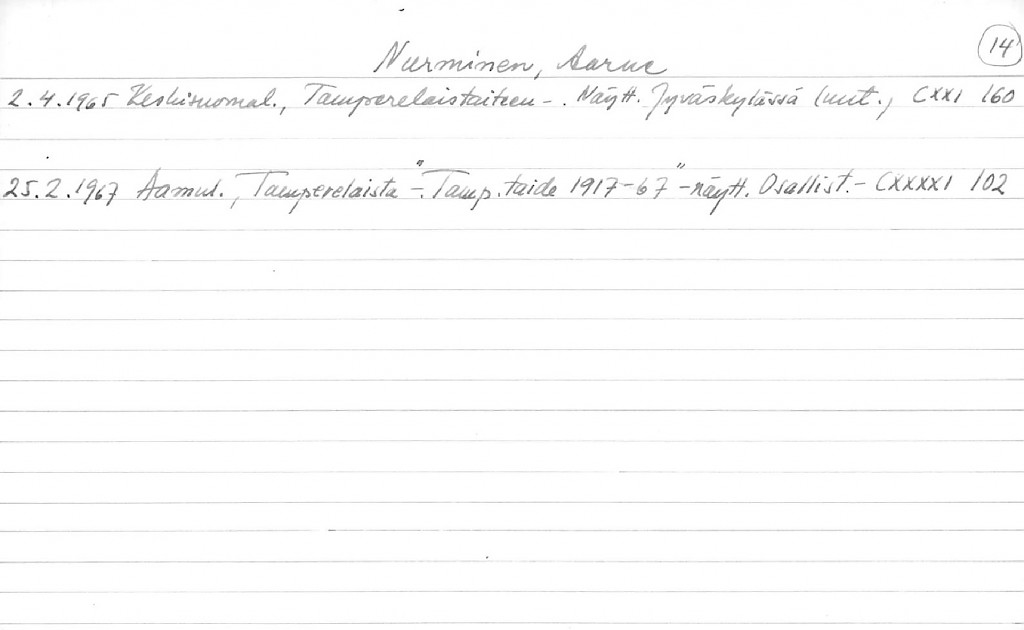 14
Nurminen, Aarne
2.4.1965 Keskisuomal., Tamperelaistaiteen -. Näytt. Jyväskylässä (mt., CXXI 160
25.2.1967 Aamul., Tamperelaista -. "Tamp. taide 1917-67" -näytt. Osallist. - CXXXXI 102